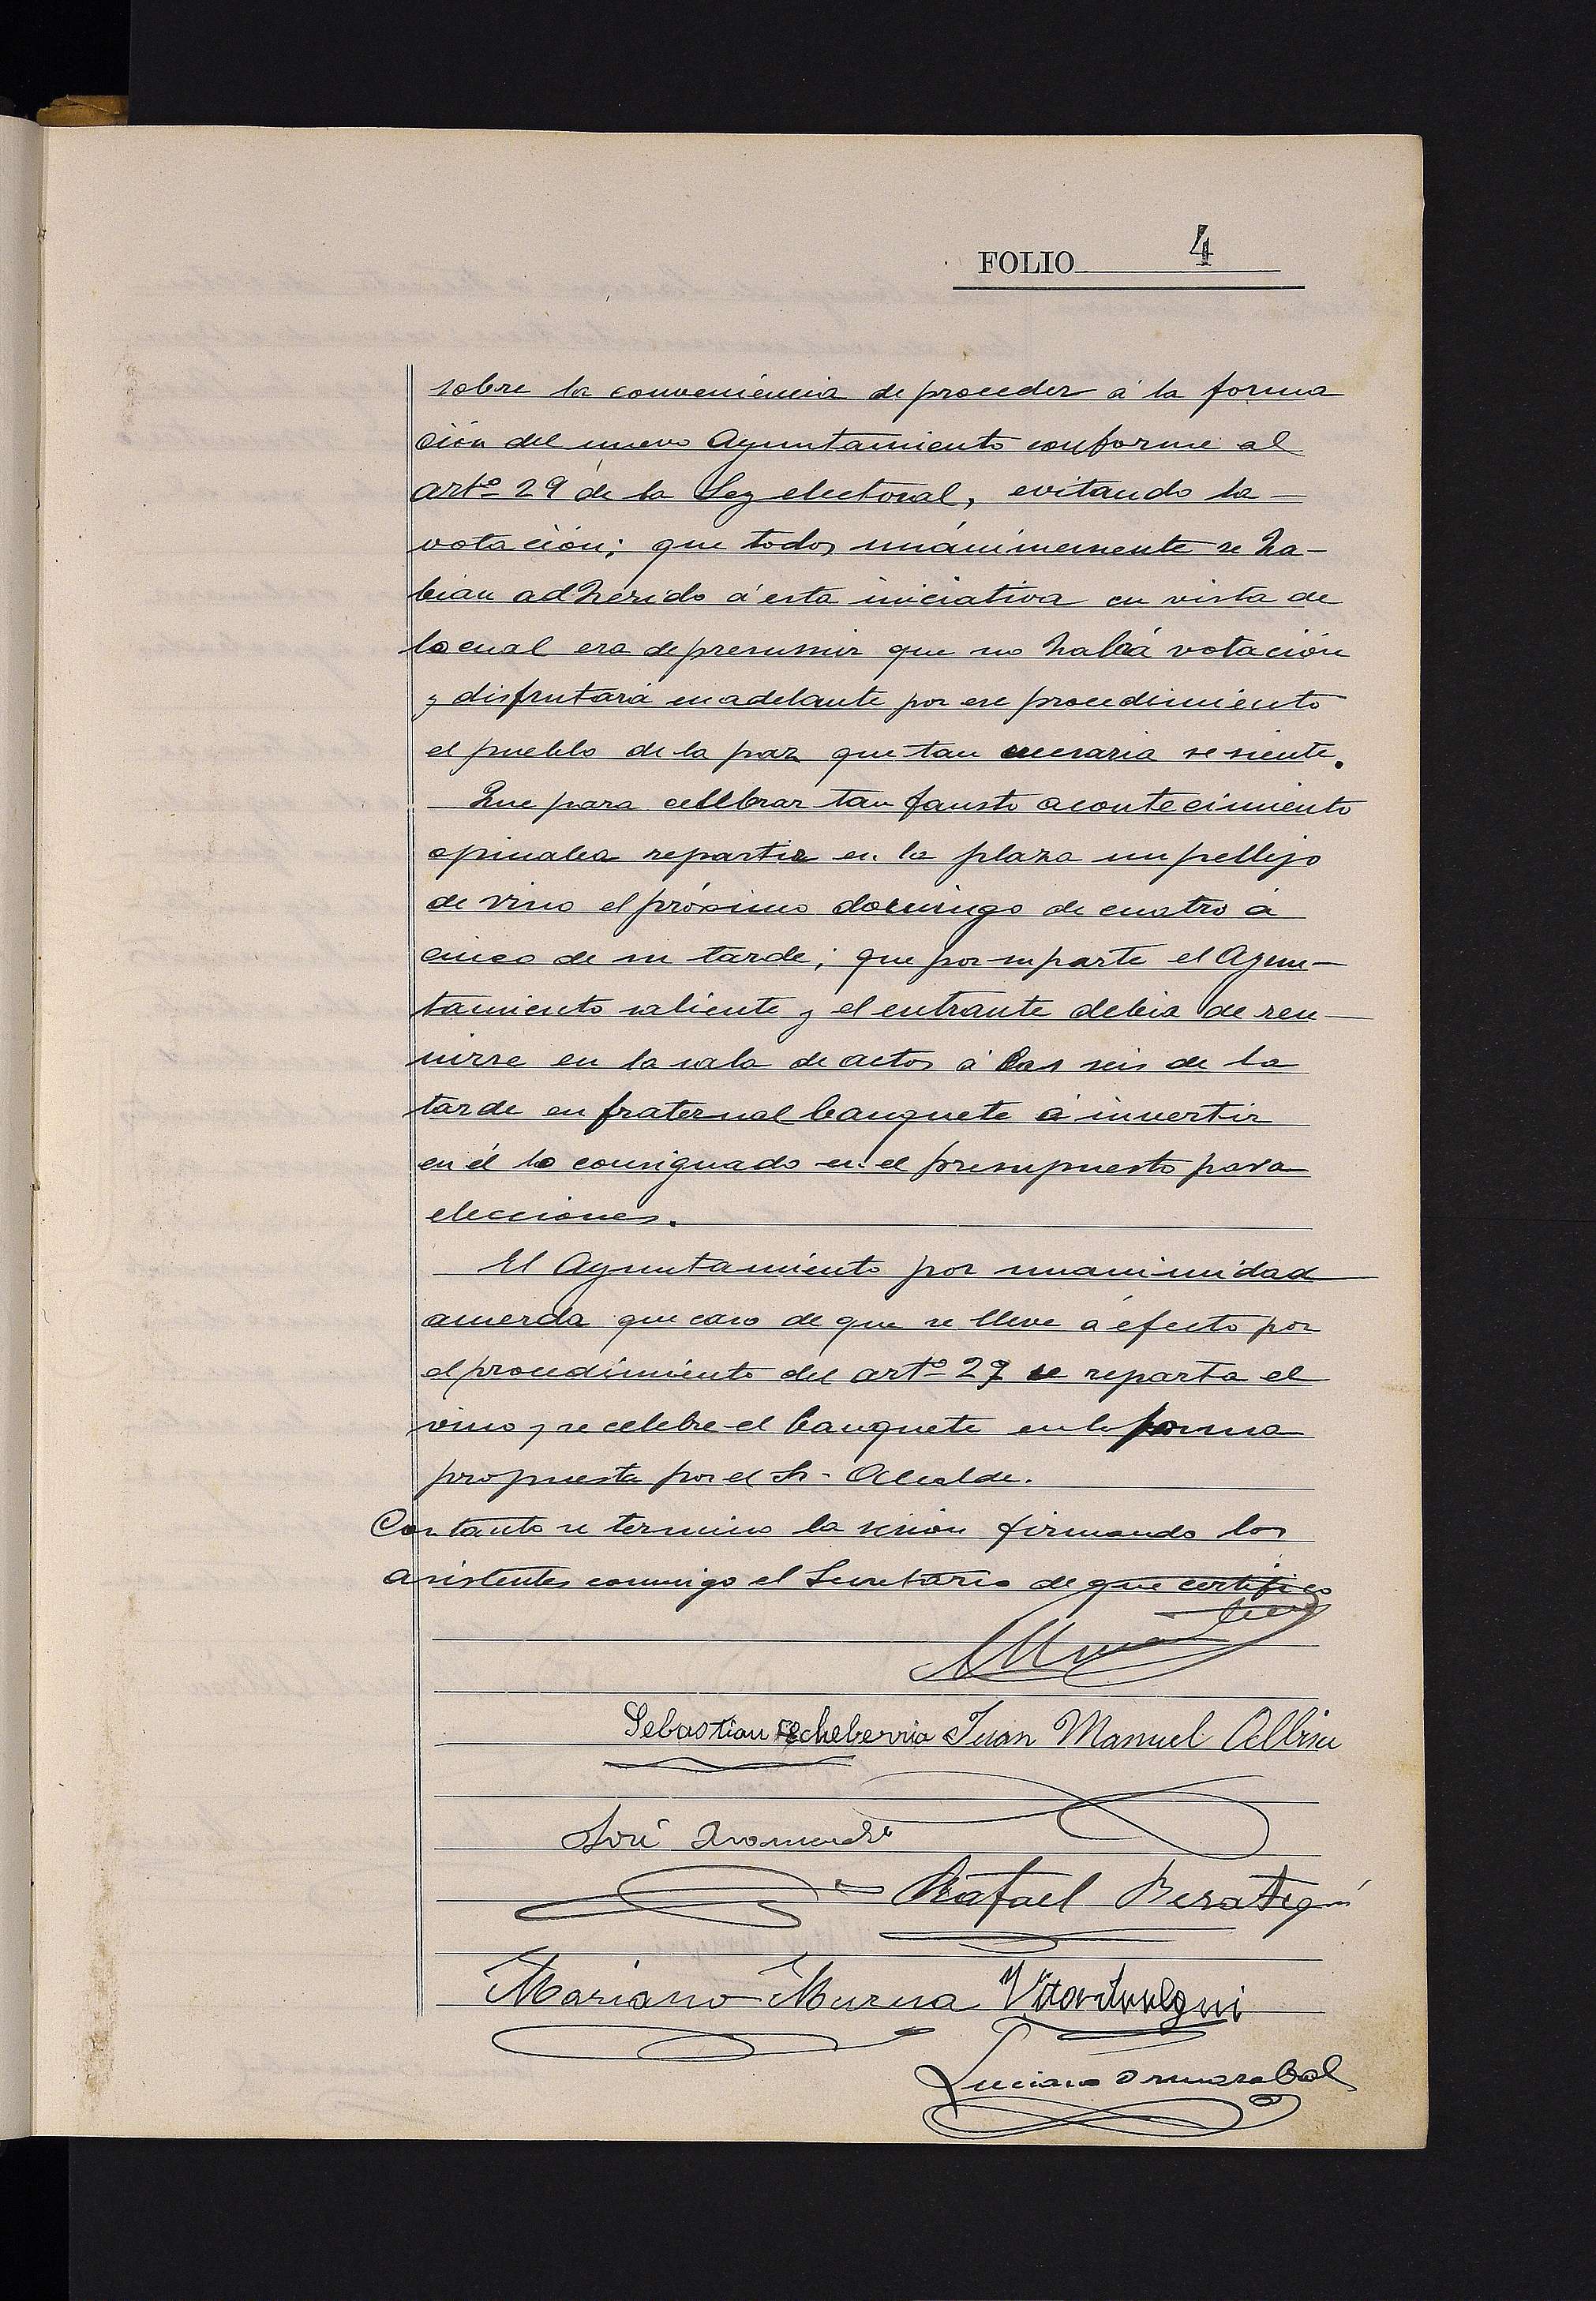 FOLIO 4
sobre la conveniencia de proceder á la forma
ción del nuevo Ayuntamiento conforme al
artº 29 de la Ley electoral, evitando la
votación; que todos unánimemente se ha-
bian adherido á esta iniciativa en vista de
lo cual era de presumir que no habrá votación
y disfrutará en adelante por ese procedimiento
el pueblo de la paz que tan necesaria se siente.
Que para celebrar tan fausto acontecimiento
opinaba repartir en la plaza un pellejo
de vino el próximo domingo de cuatro á
cinco de su tarde; que por su parte el Ayun-
tamiento saliente y el entrante debia de reu-
nirse en la sala de actos á las seis de la
tarde en fraternal banquete á invertir
en él lo consignado en el presupuesto para
elecciones.
El Ayuntamiento por unanimidad
acuerda que caso de que se lleve á efecto por
el procedimiento del artº 29 se reparta el
vino y se celebre el banquete en la forma
propuesta por el Sr. Alcalde.
Con tanto se termino la sesión firmando los
asistentes conmigo el Secretario de que certifico
Sebastian Echeberria Juan Manuel Albisu
José
Rafael Berategui
Mariano Murua
Luciano Ormazabal